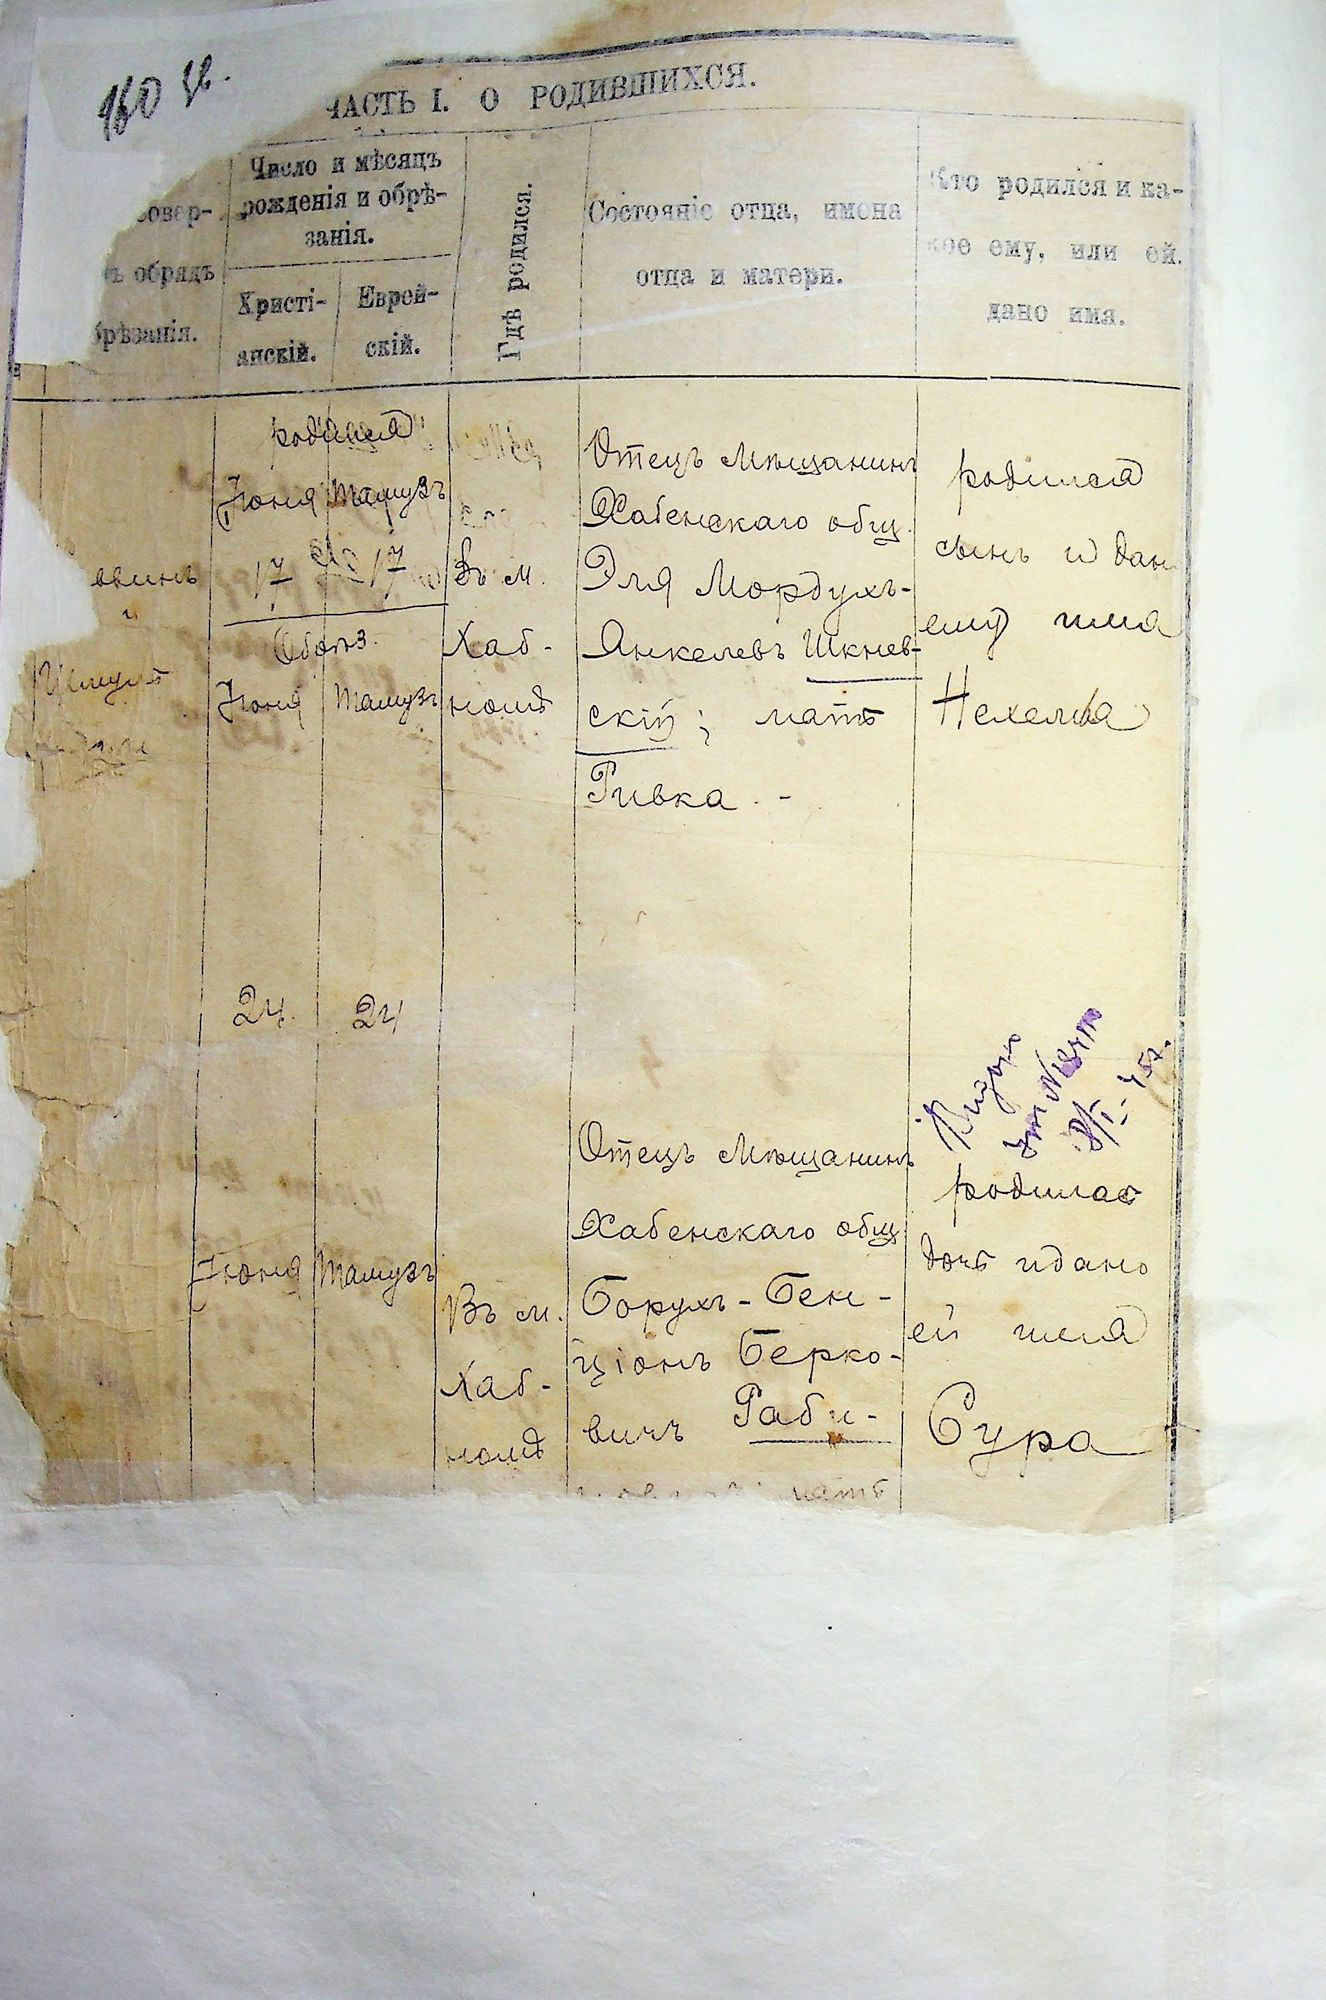 ЧАСТЬ I. О РОДИВШИХСЯ.
совер-
обрядъ
брѣзанія.
Число и мѣсяцъ
рожденія и обрѣ-
занія.
Христі-
анскій.
Еврей-
скій.
Гдѣ родился.
Состояніе отца, имена
отца и матери.
Кто родился и ка-
кое ему, или ей.
дано имя.
родился
Іюня
17
Обрѣз.
Іюня
24
Тамузъ
17
Тамузъ
24
Въ м.
Хаб-
номъ
Отецъ Мѣщанинъ
Хабенскаго общ.
Эля Мордухъ-
Янкелевъ Шкнев-
скій; мать
Ривка -
родился
сынъ и дан
ему имя
Нехемія
Іюня
Тамузъ
Въ м.
Хаб-
номъ
Отецъ Мѣщанинъ
Хабенскаго общ
Борухъ-Бен-
ціонъ Берко-
вичъ Раби-
мать
8/I-
родилась
дочь и дано
ей имя
Сура